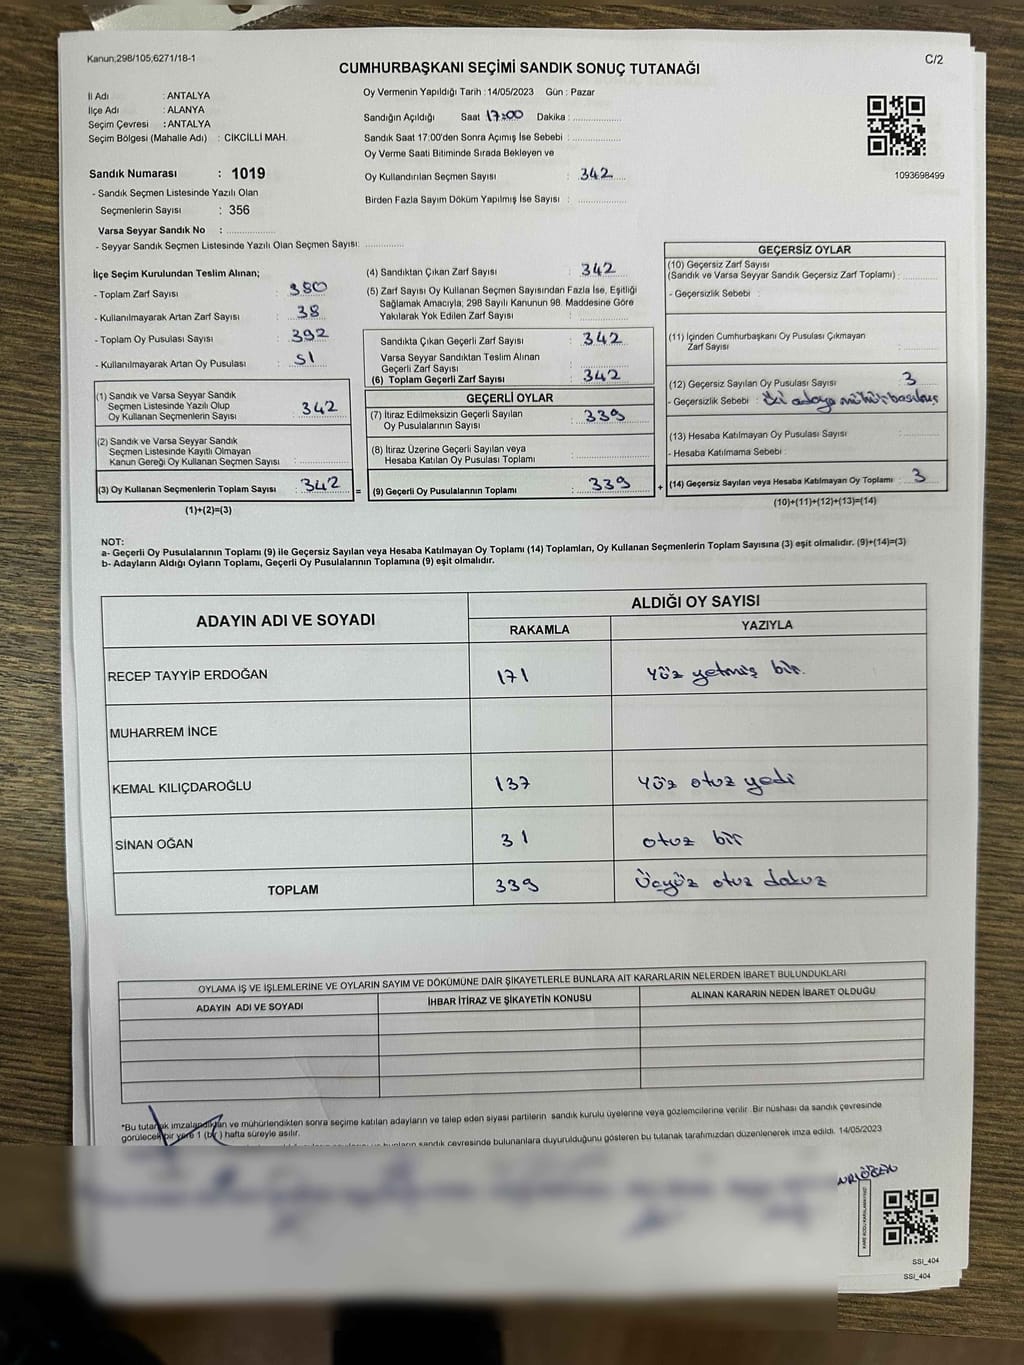 Kanun;298/105,6271/18-1
C/2
CUMHURBAŞKANI SEÇİMİ SANDIK SONUÇ TUTANAĞI
İl Adı : ANTALYA
İlçe Adı : ALANYA
Seçim Çevresi : ANTALYA
Seçim Bölgesi (Mahalle Adı) : CİKCİLLİ MAH.
Sandık Numarası : 1019
- Sandık Seçmen Listesinde Yazılı Olan
Seçmenlerin Sayısı : 356
Varsa Seyyar Sandık No :
- Seyyar Sandık Seçmen Listesinde Yazılı Olan Seçmen Sayısı:
Oy Vermenin Yapıldığı Tarih : 14/05/2023 Gün : Pazar
Sandığın Açıldığı Saat 17:00 Dakika :
Sandık Saat 17:00'den Sonra Açımış İse Sebebi :
Oy Verme Saati Bitiminde Sırada Bekleyen ve
Oy Kullandırılan Seçmen Sayısı : 342
Birden Fazla Sayım Döküm Yapılmış İse Sayısı :
1093698499
İlçe Seçim Kurulundan Teslim Alınan;
- Toplam Zarf Sayısı : 380
- Kullanılmayarak Artan Zarf Sayısı : 38
- Toplam Oy Pusulası Sayısı : 392
- Kullanılmayarak Artan Oy Pusulası : 51
(1) Sandık ve Varsa Seyyar Sandık
Seçmen Listesinde Yazılı Olup
Oy Kullanan Seçmenlerin Sayısı : 342
(2) Sandık ve Varsa Seyyar Sandık
Seçmen Listesinde Kayıtlı Olmayan
Kanun Gereği Oy Kullanan Seçmen Sayısı :
(3) Oy Kullanan Seçmenlerin Toplam Sayısı : 342 =
(1)+(2)=(3)
(4) Sandıktan Çıkan Zarf Sayısı : 342
(5) Zarf Sayısı Oy Kullanan Seçmen Sayısından Fazla İse, Eşitliği
Sağlamak Amacıyla; 298 Sayılı Kanunun 98. Maddesine Göre
Yakılarak Yok Edilen Zarf Sayısı :
Sandıkta Çıkan Geçerli Zarf Sayısı : 342
Varsa Seyyar Sandıktan Teslim Alınan
Geçerli Zarf Sayısı :
(6) Toplam Geçerli Zarf Sayısı : 342
GEÇERLİ OYLAR
(7) İtiraz Edilmeksizin Geçerli Sayılan
Oy Pusulalarının Sayısı : 339
(8) İtiraz Üzerine Geçerli Sayılan veya
Hesaba Katılan Oy Pusulası Toplamı :
(9) Geçerli Oy Pusulalarının Toplamı : 339 +
GEÇERSİZ OYLAR
(10) Geçersiz Zarf Sayısı
(Sandık ve Varsa Seyyar Sandık Geçersiz Zarf Toplamı) :
- Geçersizlik Sebebi :
(11) İçinden Cumhurbaşkanı Oy Pusulası Çıkmayan
Zarf Sayısı :
(12) Geçersiz Sayılan Oy Pusulası Sayısı : 3
- Geçersizlik Sebebi : iki adaya mühür basılmış
(13) Hesaba Katılmayan Oy Pusulası Sayısı :
- Hesaba Katılmama Sebebi :
(14) Geçersiz Sayılan veya Hesaba Katılmayan Oy Toplamı : 3
(10)+(11)+(12)+(13)=(14)
NOT:
a- Geçerli Oy Pusulalarının Toplamı (9) ile Geçersiz Sayılan veya Hesaba Katılmayan Oy Toplamı (14) Toplamları, Oy Kullanan Seçmenlerin Toplam Sayısına (3) eşit olmalıdır. (9)+(14)=(3)
b- Adayların Aldığı Oyların Toplamı, Geçerli Oy Pusulalarının Toplamına (9) eşit olmalıdır.
ADAYIN ADI VE SOYADI
ALDIĞI OY SAYISI
RAKAMLA YAZIYLA
RECEP TAYYİP ERDOĞAN 171 Yüz yetmiş bir.
MUHARREM İNCE
KEMAL KILIÇDAROĞLU 137 Yüz otuz yedi
SİNAN OĞAN 31 otuz bir
TOPLAM 339 Üçyüz otuz dokuz
OYLAMA İŞ VE İŞLEMLERİNE VE OYLARIN SAYIM VE DÖKÜMÜNE DAİR ŞİKAYETLERLE BUNLARA AİT KARARLARIN NELERDEN İBARET BULUNDUKLARI
ADAYIN ADI VE SOYADI İHBAR İTİRAZ VE ŞİKAYETİN KONUSU ALINAN KARARIN NEDEN İBARET OLDUĞU
*Bu tutanak imzalandıktan ve mühürlendikten sonra seçime katılan adayların ve talep eden siyasi partilerin sandık kurulu üyelerine veya gözlemcilerine verilir. Bir nüshası da sandık çevresinde
görülecek bir yere 1 (bir) hafta süreyle asılır.
sandık çevresinde bulunanlara duyurulduğunu gösteren bu tutanak tarafımızdan düzenlenerek imza edildi. 14/05/2023
SSİ_404
SSİ_404